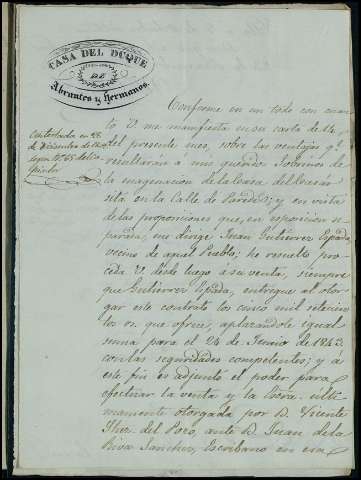 CASA DEL DUQUE
DE
Abrantes y hermanos.
Contestada en 26
de Diciembre de
Conforme en un todo con cuan
to V. me manifiesta en su carta de 14,
del presente mes, sobre las ventajas qe.
resultarán á mis queridos Sobrinos de
la enagenacion de la Casa
sita en la Calle de Paredes; y en vista
de las proposiciones que, en esposicion se
parada, me dirige Juan Gutierrez Espada,
vecino de aquel Pueblo; he resuelto pro
ceda V. desde luego á su venta, siempre
que Gutierrez Espada, entregue al otor
gar este contrato los cinco mil setecien
tos rs. que ofrece, aplazandole igual
suma para el 24 de Junio de 1843.
con las seguridades competentes; y á
este fin es adjunto el poder para
efectuar la venta y la Escra. ulti
mamente otorgada por D. Vicente
del Pozo, ante D. Juan de la
Riva Sanchez, Escribano en esa